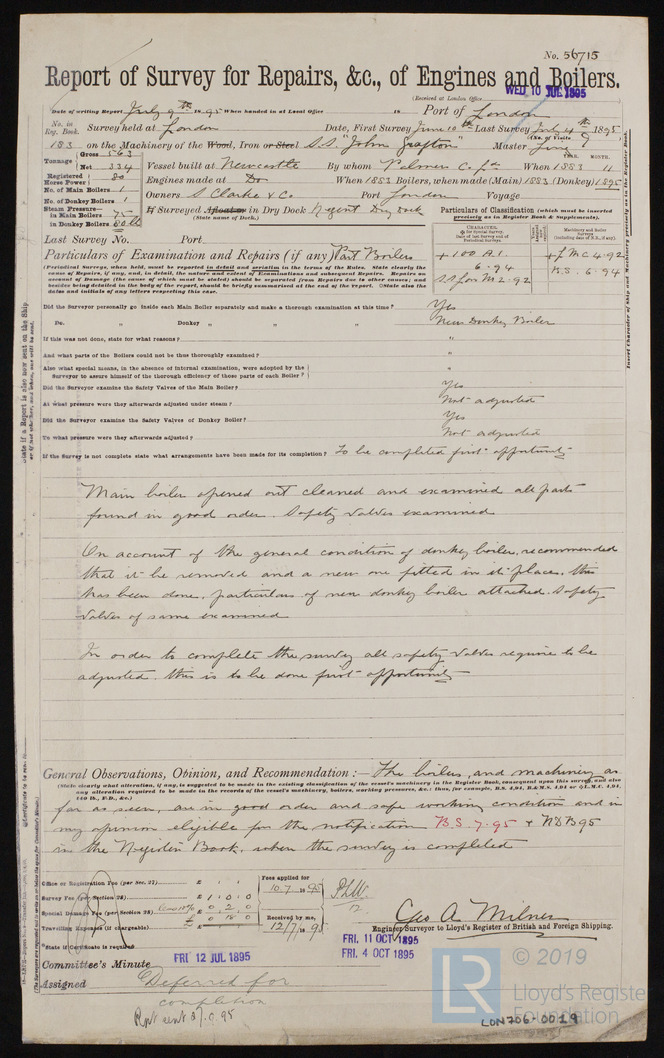 No. 56715
Report of Survey for Repairs, &c., of Engines and Boilers.
(Received at London Office WED 10 JUL 1895
Date of writing Report July 9th 1895 When handed in at Local Office 18 Port of London
No. in Reg. Book. Survey held at London Date, First Survey June 10th Last Survey July 4th 1895
(No. of Visits 9
183 on the Machinery of the Wood, Iron or Steel S.S. "John Grafton" Master
Tonnage Gross 563
Net 334
Vessel built at Newcastle By whom Palmers C. Ld When 1883 11
YEAR. MONTH.
Registered Horse Power 80
Engines made at Do When 1883 Boilers, when made (Main) 1883 (Donkey) 1895
No. of Main Boilers 1
No. of Donkey Boilers 1
Owners S. Clarke & Co Port London Voyage
Steam Pressure in Main Boilers 75
in Donkey Boilers 80 lb
If Surveyed Afloat or in Dry Dock Regent Dry Dock
(State name of Dock.)
Particulars of Classification (which must be inserted precisely as in Register Book & Supplements).
Last Survey No. Port
Particulars of Examination and Repairs (if any) Part Boilers
+ 100 A.1.
6.94
+ L.M.C 4.92
B.S. 6.94
(Periodical Surveys, when held, must be reported in detail and seriatim in the terms of the Rules. State clearly the
cause of Repairs, if any, and, in detail, the nature and extent of Examinations and subsequent Repairs. Repairs on
account of Damage (the cause of which must be stated) should be separated from Repairs due to other causes; and
besides being detailed in the body of the report, should be briefly summarised at the end of the report. State also the
dates and initials of any letters respecting this case.
Did the Surveyor personally go inside each Main Boiler separately and make a thorough examination at this time? Yes
Do. " Donkey " " " New Donkey Boiler
If this was not done, state for what reasons? "
And what parts of the Boilers could not be thus thoroughly examined? "
Also what special means, in the absence of internal examination, were adopted by the
Surveyor to assure himself of the thorough efficiency of those parts of each Boiler? "
Did the Surveyor examine the Safety Valves of the Main Boiler? Yes
At what pressure were they afterwards adjusted under steam? Not adjusted
Did the Surveyor examine the Safety Valves of Donkey Boiler? Yes
To what pressure were they afterwards adjusted? Not adjusted
If the Survey is not complete state what arrangements have been made for its completion? To be completed first opportunity
Main boiler opened out cleaned and examined all parts
found in good order. Safety valves examined
On account of the general condition of donkey boiler, recommended
that it be removed and a new one fitted in its place, this
has been done, particulars of new donkey boiler attached. Safety
valves of same examined
In order to complete the survey all safety valves require to be
adjusted. this is to be done first opportunity
General Observations, Opinion, and Recommendation:— The boilers, and machinery as
(State clearly what alteration, if any, is suggested to be made in the existing classification of the vessel's machinery in the Register Book, consequent upon this survey, and also
any alteration required to be made in the records of the vessel's machinery, boilers, working pressures, &c.
far as seen, are in good order and safe working condition and in
my opinion eligible for the notification B.S. 7.95 & NDB95
in the Register Book, when the survey is completed
Office or Registration Fee (per Sec. 27) £ : :
Fees applied for
10.7.1895
Survey Fee (per Section 28) £ 1 : 0 : 0
Special Damage Fee (per Section 28) Less 10% £ 0 : 2 : 0
£ 0 : 18 : 0
Travelling Expenses (if chargeable)
Received by me,
12/7/1895
Geo A. Milner
Engineer Surveyor to Lloyd's Register of British and Foreign Shipping.
State if Certificate is required
Committee's Minute FRI 12 JUL 1895
FRI. 11 OCT 1895
FRI. 4 OCT 1895
Assigned Deferred for
completion
LON706-0019
© 2019
LR
Lloyd's Register
Foundation